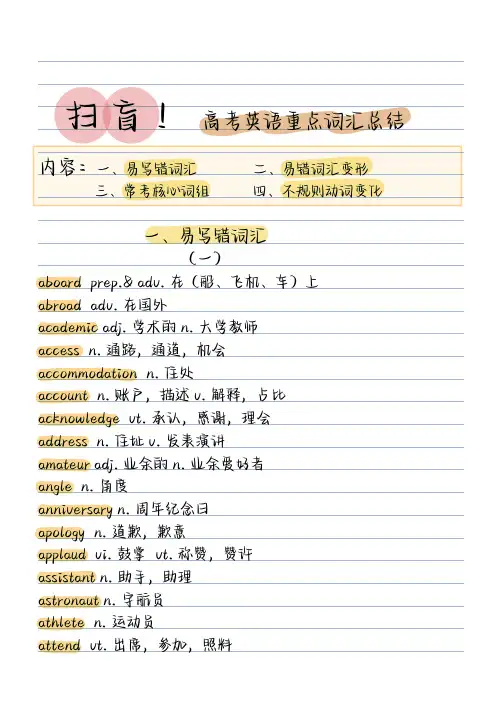 扫盲! 高考英语重点词汇总结
内容: 一、易写错词汇 二、易错词汇变形
三、常考核心词组 四、不规则动词变化
一、易写错词汇
(一)
aboard prep.& adv. 在(船、飞机、车)上
abroad adv. 在国外
academic adj. 学术的 n. 大学教师
access n. 通路, 通道, 机会
accommodation n. 住处
account n. 账户, 描述 v. 解释, 占比
acknowledge vt. 承认, 感谢, 理会
address n. 住址 v. 发表演讲
amateur adj. 业余的 n. 业余爱好者
angle n. 角度
anniversary n. 周年纪念日
apology n. 道歉, 歉意
applaud vi. 鼓掌 vt. 称赞, 赞许
assistant n. 助手, 助理
astronaut n. 宇航员
athlete n. 运动员
attend vt. 出席, 参加, 照料